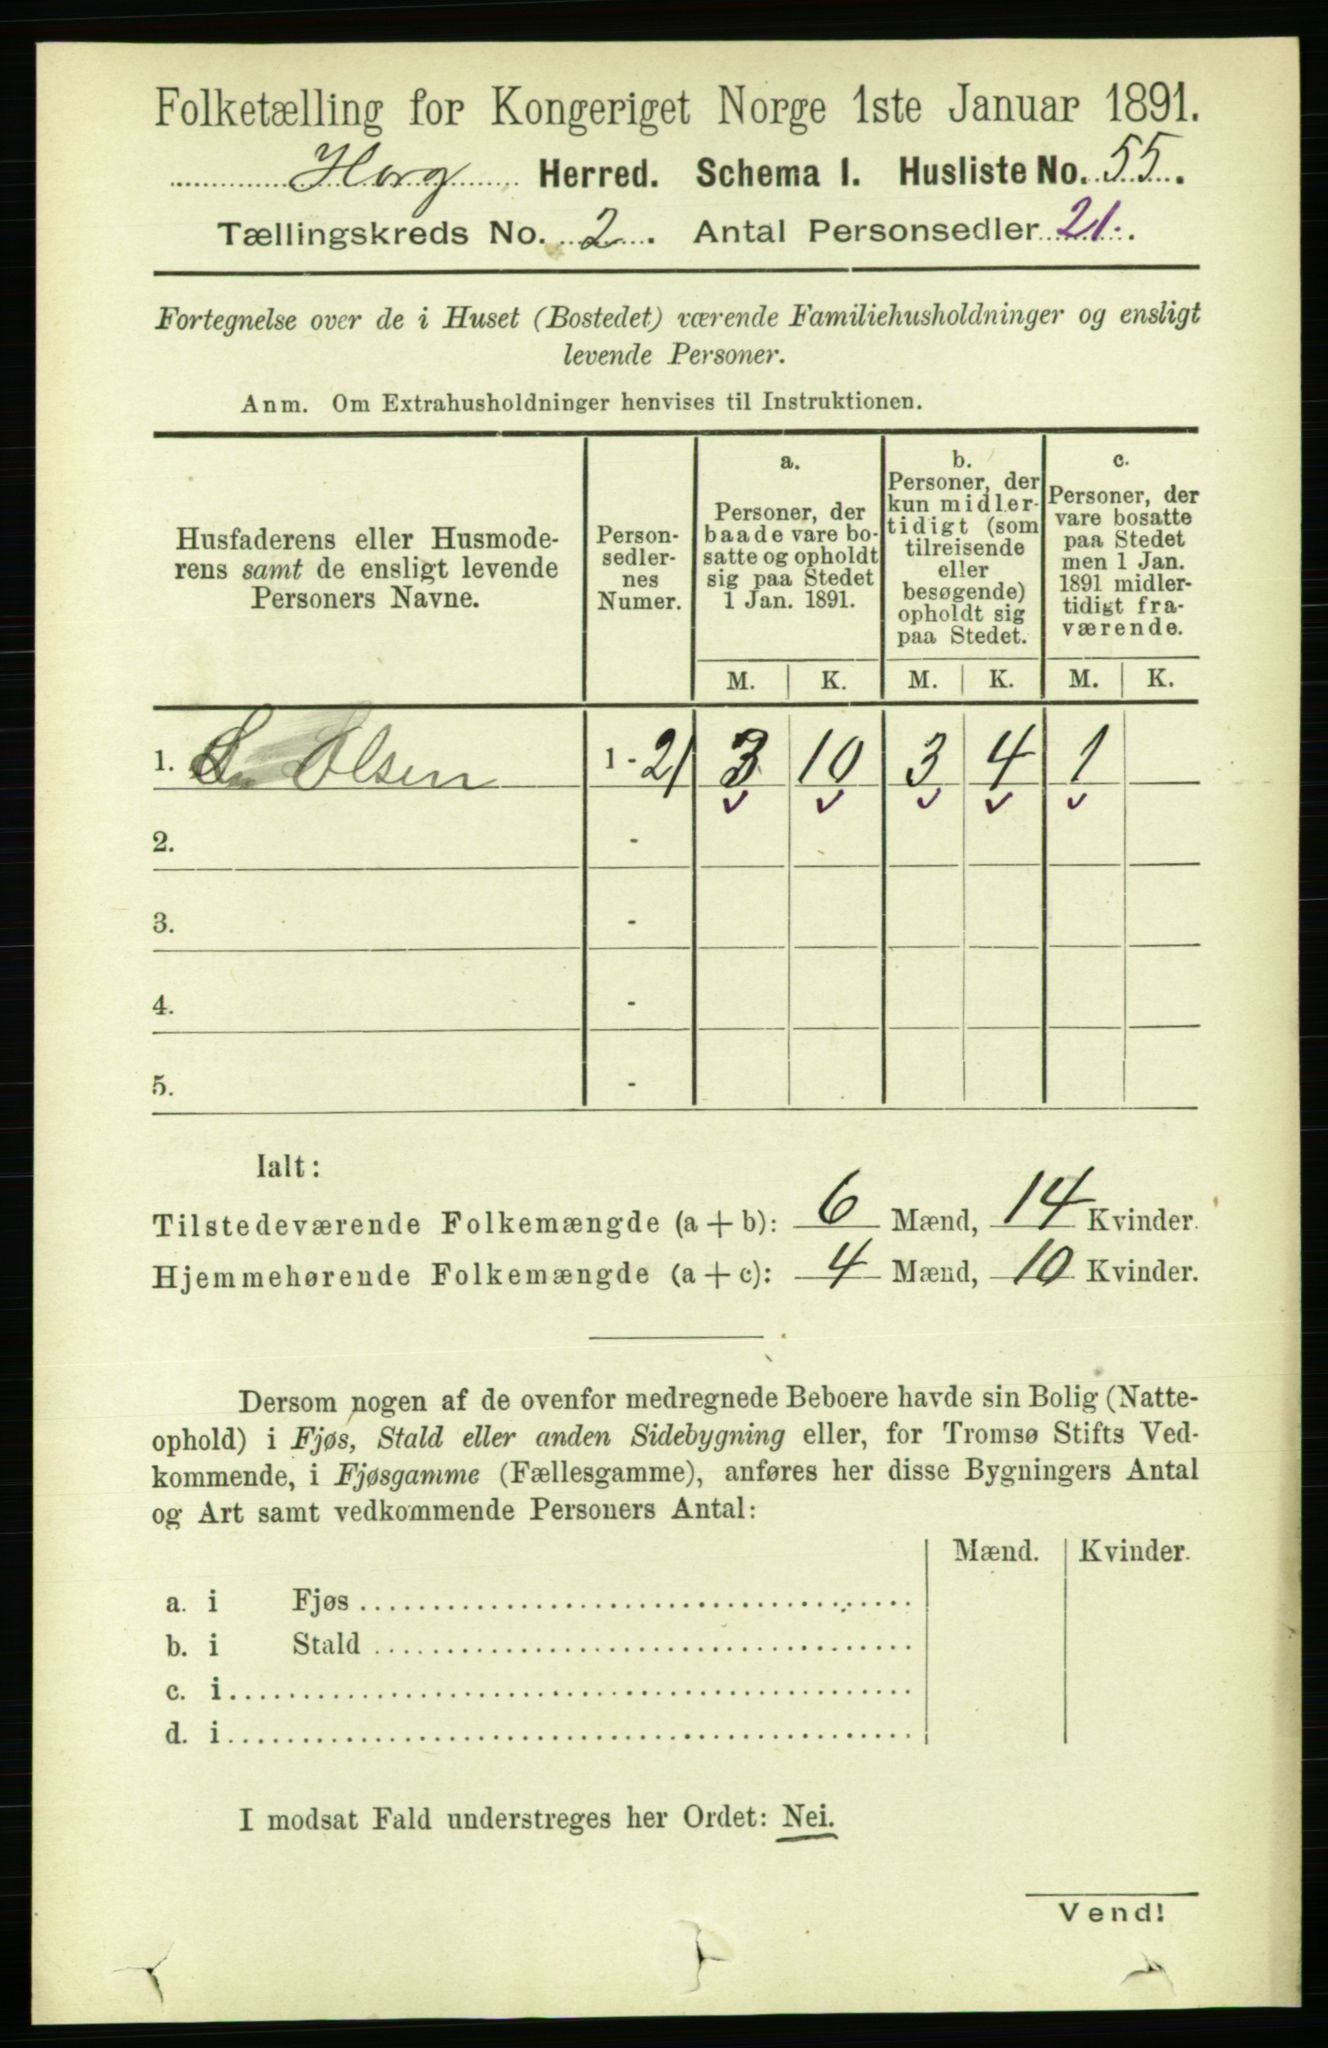 Folketælling for Kongeriget Norge 1ste Januar 1891.
Horg Herred. Schema I. Husliste No. 55.
Tællingskreds No. 2. Antal Personsedler 21.
Fortegnelse over de i Huset (Bostedet) værende Familiehusholdninger og ensligt
levende Personer.
Anm. Om Extrahusholdninger henvises til Instruktionen.
Husfaderens eller Husmode-
rens samt de ensligt levende
Personers Navne.
Person-
sedler-
nes
Numer.
a.
Personer, der
baade vare bo-
satte og opholdt
sig paa Stedet
1 Jan. 1891.
b.
Personer, der
kun midler-
tidigt (som
tilreisende
eller
besøgende)
opholdt sig
paa Stedet.
c.
Personer, der
vare bosatte
paa Stedet
men 1 Jan.
1891 midler-
tidigt fra-
værende.
M. K. M. K. M. K.
1. Olsen 1-21 3 10 3 4 1
2. -
3. -
4. -
5. -
Ialt:
Tilstedeværende Folkemængde (a+b): 6 Mænd, 14 Kvinder.
Hjemmehørende Folkemængde (a+c): 4 Mænd, 10 Kvinder.
Dersom nogen af de ovenfor medregnede Beboere havde sin Bolig (Natte-
ophold) i Fjøs, Stald eller anden Sidebygning eller, for Tromsø Stifts Ved-
kommende, i Fjøsgamme (Fællesgamme), anføres her disse Bygningers Antal
og Art samt vedkommende Personers Antal:
Mænd. Kvinder.
a. i Fjøs
b. i Stald
c. i
d. i
I modsat Fald understreges her Ordet: Nei.
Vend!